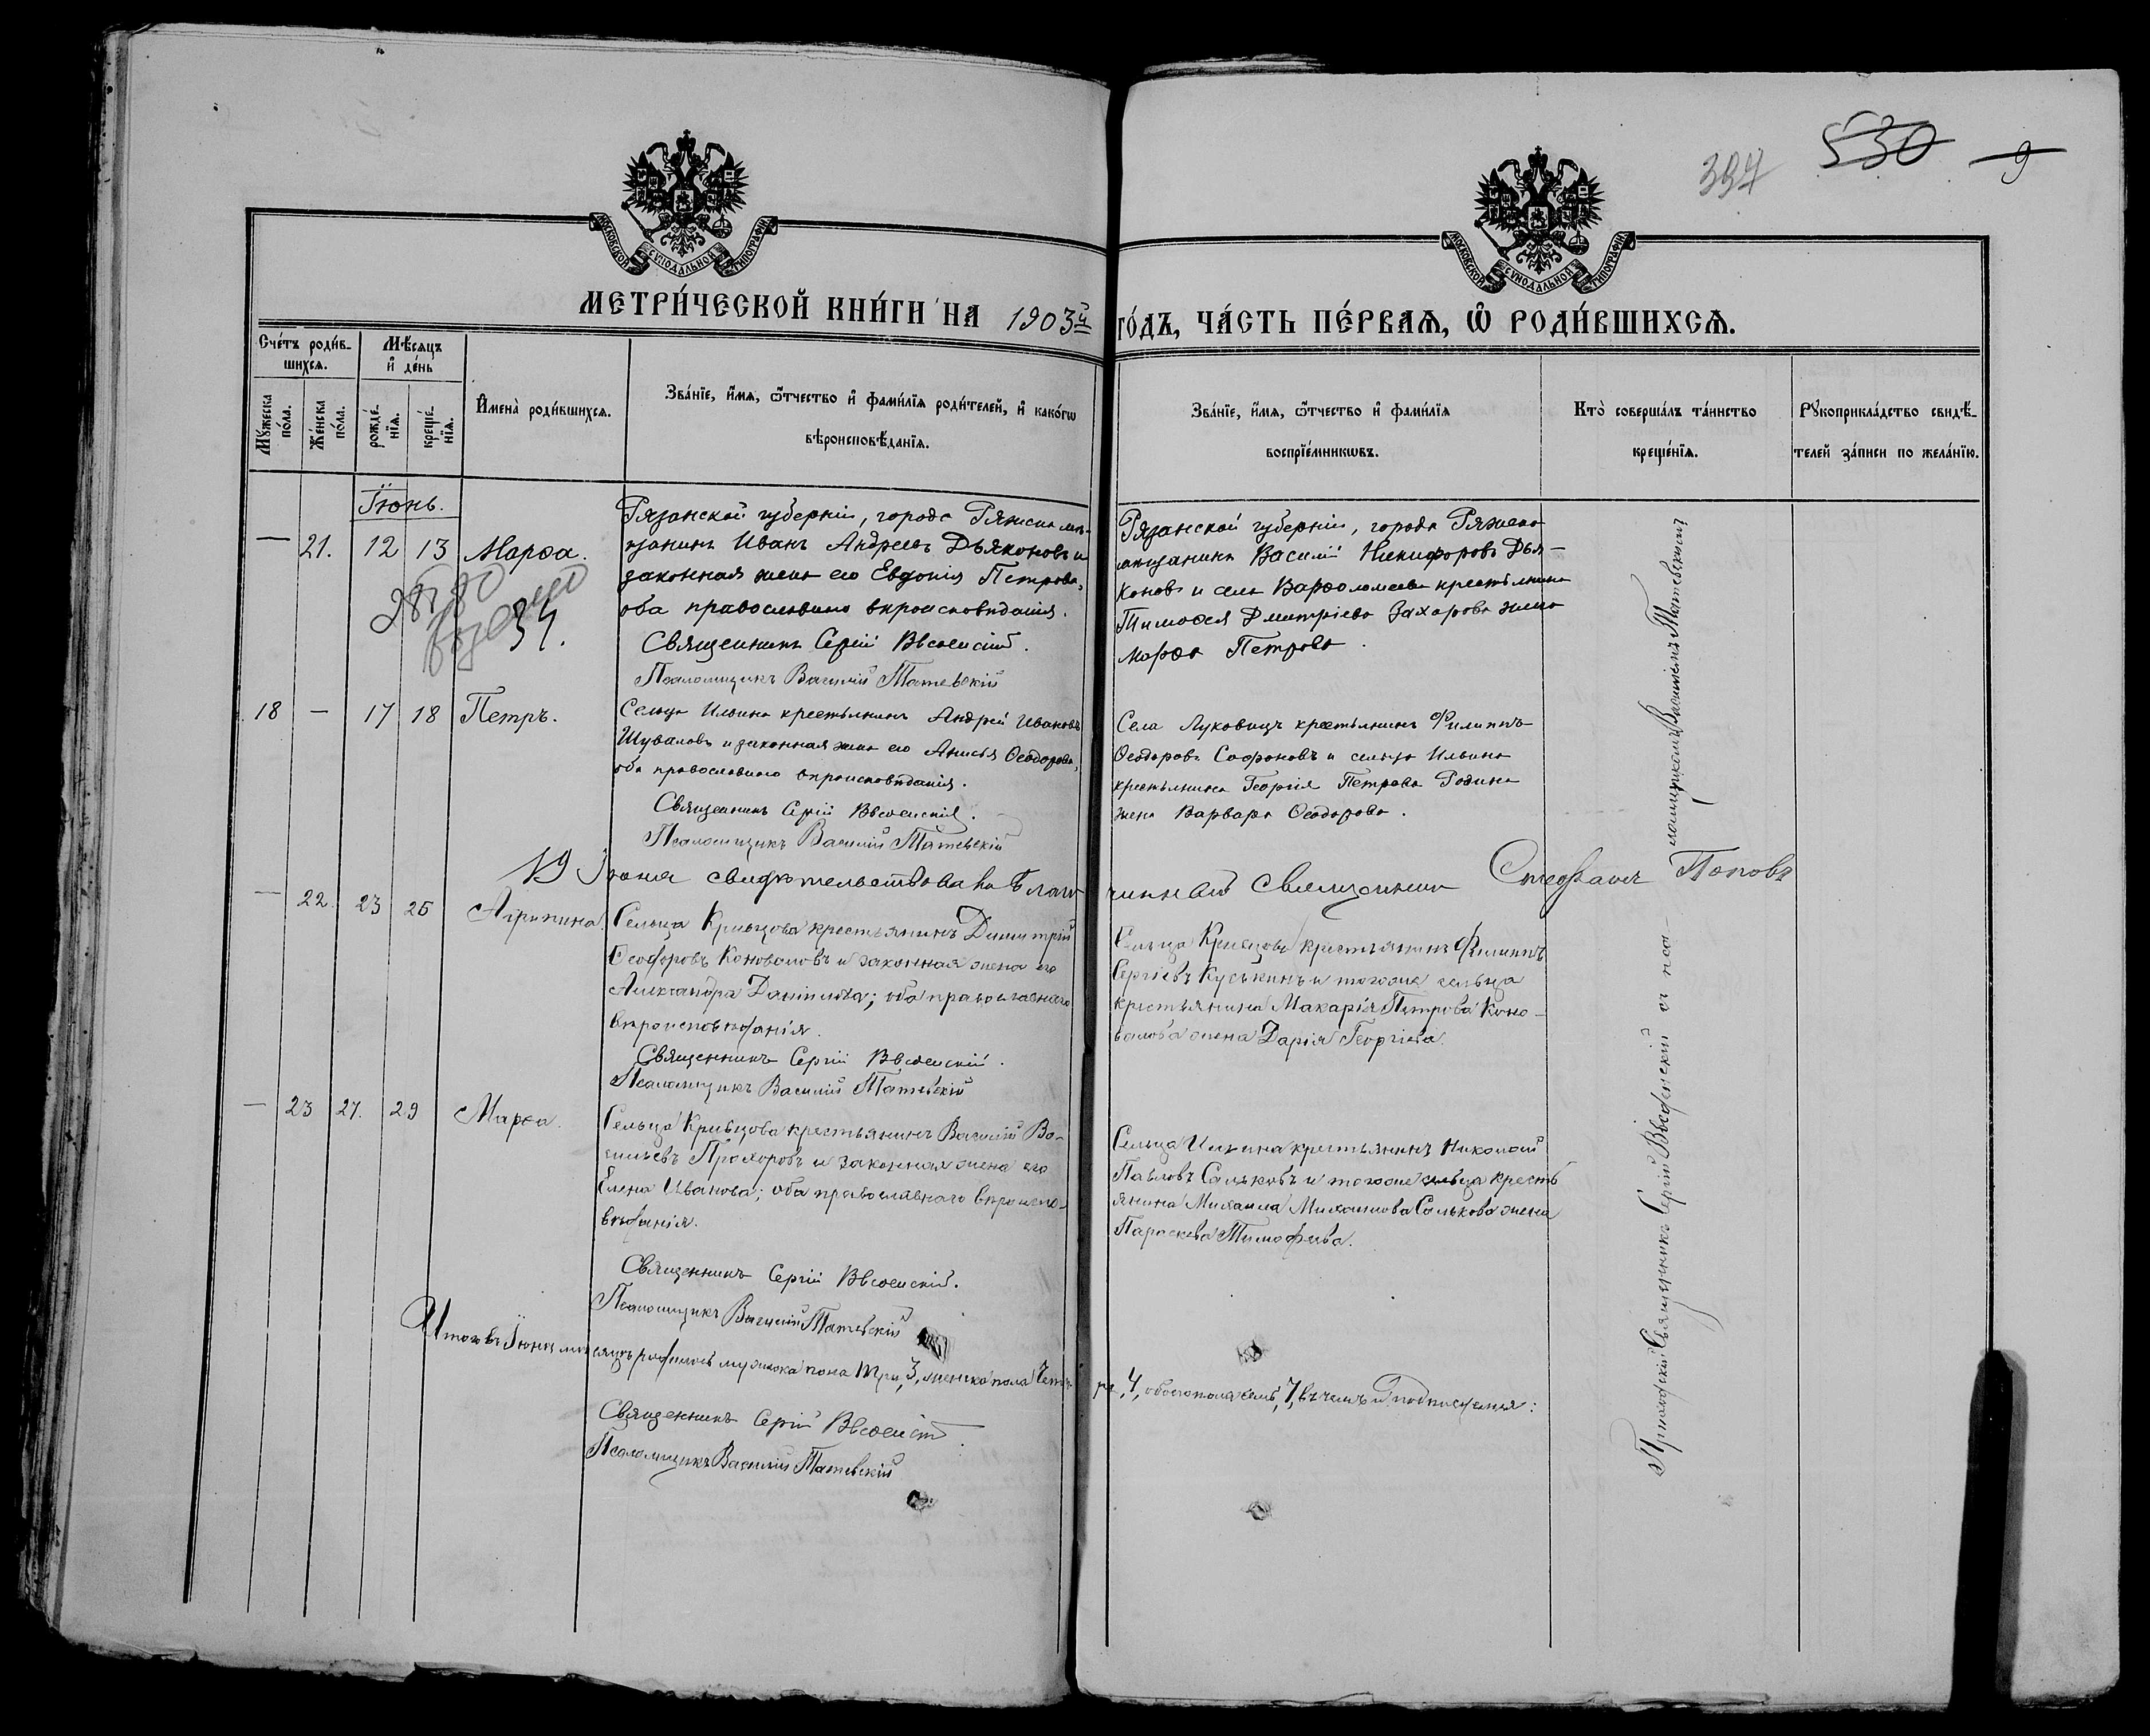 397
530
9
МОСКОВСКОЙ СѴНОДАЛЬНОЙ ТИПОГРАФІИ
МОСКОВСКОЙ СѴНОДАЛЬНОЙ ТИПОГРАФІИ
МЕТРИ́ЧЕСКОЙ КНИ́ГИ НА 1903й
ГО́ДЪ, ЧА́СТЬ ПЕ́РВАѦ, Ѽ РОДИ́ВШИХСѦ.
Сче́тъ роди́в-
шихсѧ.
Мѣ́сѧцъ
и҆ де́нь
Мꙋ́жеска
по́ла.
Же́нска
по́ла.
рожде́-
нїѧ.
креще́-
нїѧ.
И҆мена̀ роди́вшихсѧ.
Зва́нїе, и҆́мѧ, ѻ҆́тчество и҆ фами́лїѧ роди́телей, и҆ како́гѡ
вѣроисповѣ́данїѧ.
Зва́нїе, и҆́мѧ, ѻ҆́тчество и҆ фами́лїѧ
воспрїе́мникѡвъ.
Кто̀ соверша́лъ та́инство
креще́нїѧ.
Рꙋкоприкла́дство свидѣ́-
телей за́писи по жела́нїю.
Іюнь.
— 21. 12 13 Марѳа.
34.
Рязанской губерніи, города Ряжска мѣ-
щанинъ Иванъ Андреевъ Дьяконовъ и
законная жена его Евдокія Петрова,
оба православнаго вѣроисповѣданія.
Священникъ Сергій Введенскій.
Псаломщикъ Василій Татевскій
Рязанской губерніи, города Ряжска
мѣщанинъ Василій Никифоровъ Дья-
коновъ и села Варѳоломеева крестьянина
Тимоѳея Дмитріева Захарова жена
Марѳа Петрова.
18 — 17 18 Петръ.
Сельца Ильина крестьянинъ Андрей Ивановъ
Шуваловъ и законная жена его Анисья Ѳеодорова,
оба православнаго вѣроисповѣданія.
Священникъ Сергій Введенскій.
Псаломщикъ Василій Татевскій
Села Луковицъ крестьянинъ Филиппъ
Ѳеодоровъ Софроновъ и сельца Ильина
крестьянина Георгія Петрова Родина
жена Варвара Ѳеодорова.
19 Іюня свидѣтельствовалъ Благо
чинный Священникъ Стефанъ Поповъ
— 22. 23 25 Агрипина.
Сельца Кривцова крестьянинъ Димитрій
Ѳеодоровъ Коноваловъ и законная жена его
Александра Даніилова; оба православнаго
вѣроисповѣданія.
Священникъ Сергій Введенскій.
Псаломщикъ Василій Татевскій
Сельца Кривцова крестьянинъ Филиппъ
Сергіевъ Куськинъ и тогоже сельца
крестьянина Макарія Петрова Коно-
валова жена Дарія Георгіева.
— 23 27. 29 Марѳа.
Сельца Кривцова крестьянинъ Василій Ва-
сильевъ Прохоровъ и законная жена его
Елена Иванова; оба православнаго вѣроиспо-
вѣданія.
Священникъ Сергій Введенскій.
Псаломщикъ Василій Татевскій
Сельца Ильина крестьянинъ Николай
Павловъ Сальковъ и тогоже сельца кресть
янина Михаила Михаилова Салькова жена
Параскева Тимофеева.
Итого въ Іюнѣ мѣсяцѣ родилось мужеска пола три, 3, женска пола четы-
ре, 4, обоего пола семь, 7, въ чемъ и подписуемся:
Священникъ Сергій Введенскій
Псаломщикъ Василій Татевскій
Приходскій Священникъ Сергій Введенскій съ пса-
ломщикомъ Василіемъ Татевскимъ